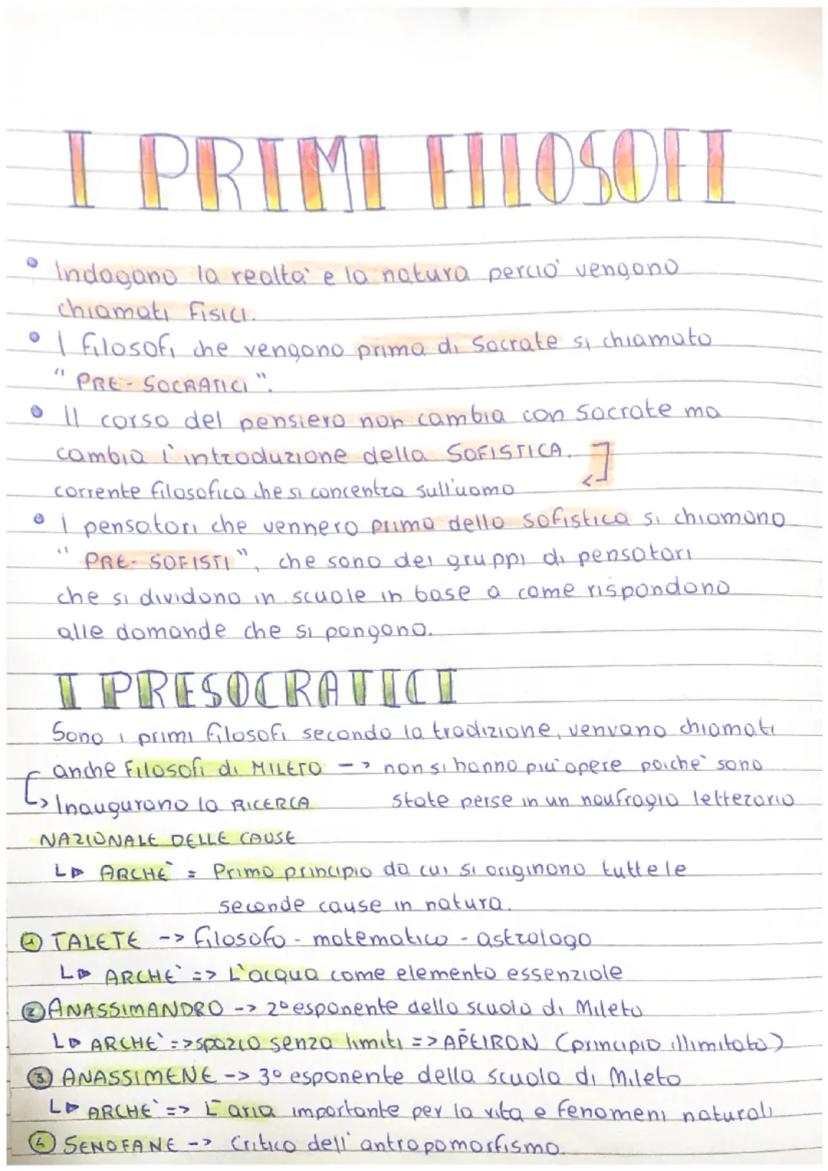 I PRIMI FILOSOFI
• Indagano la realtà e la natura perciò vengono
chiamati fisici.
• I filosofi che vengono prima di Socrate si chiamato
"PRE-SOCRATICI".
• Il corso del pensiero non cambia con Socrate ma
cambia l'introduzione della SOFISTICA.
corrente filosofica che si concentra sull'uomo
• I pensatori che vennero prima della sofistica si chiamano
"PRE-SOFISTI", che sono dei gruppi di pensatori
che si dividono in scuole in base a come rispondono
alle domande che si pongono.
I PRESOCRATICI
Sono i primi filosofi secondo la tradizione, venvano chiamati
anche Filosofi di MILETO -> non si hanno più opere poichè sono
-> Inaugurano la RICERCA state perse in un naufragio letterario
NAZIONALE DELLE CAUSE
↳ ARCHÈ = Primo principio da cui si originano tutte le
seconde cause in natura.
① TALETE -> filosofo - matematico - astrologo
↳ ARCHÈ => L'acqua come elemento essenziale
② ANASSIMANDRO -> 2° esponente della scuola di Mileto
↳ ARCHÈ => spazio senza limiti => APEIRON (principio illimitato)
③ ANASSIMENE -> 3° esponente della scuola di Mileto
↳ ARCHÈ => L'aria importante per la vita e fenomeni naturali
④ SENOFANE -> Critico dell'antropomorfismo.